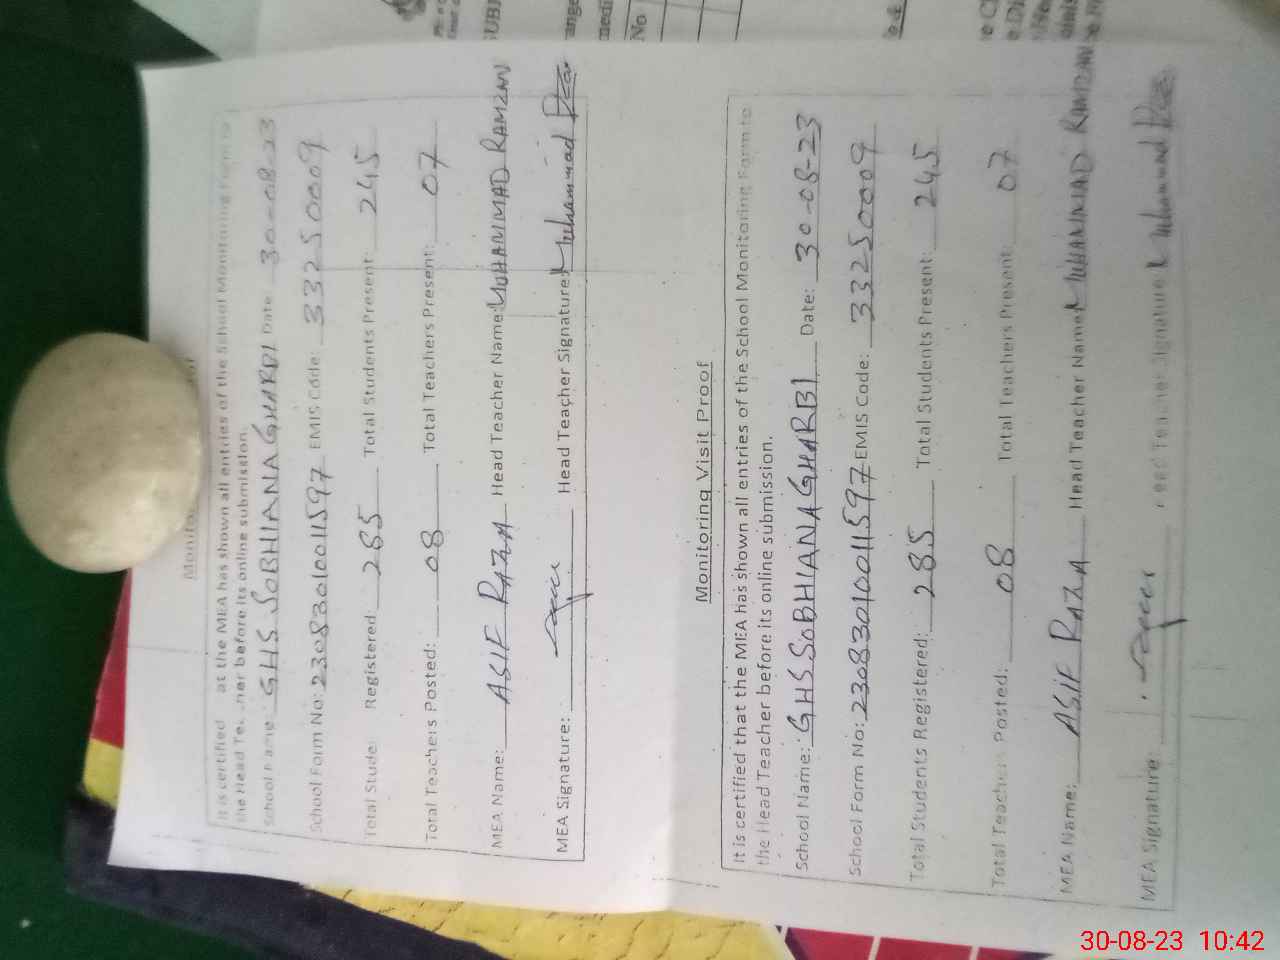 It is certified at the MEA has shown all entries of the School Monitoring Form to
the Head before its online submission.
School Name: GHS SOBHIANA GHARBI Date 30-08-23
School Form No: 23083010011597 EMIS Code: 33250009
Total Registered: 285 Total Students Present: 245
Total Teachers Posted: 08 Total Teachers Present: 07
MEA Name: ASIF RAZA Head Teacher Name: MUHAMMAD RAMZAN
MEA Signature: Head Teacher Signature: Muhammad
Monitoring Visit Proof
It is certified that the MEA has shown all entries of the School Monitoring Form to
the Head Teacher before its online submission.
School Name: GHS SOBHIANA GHARBI Date: 30-08-23
School Form No: 23083010011597 EMIS Code: 33250009
Total Students Registered: 285 Total Students Present: 245
Total Teachers Posted: 08 Total Teachers Present: 07
MEA Name: ASIF RAZA Head Teacher Name: MUHAMMAD RAMZAN
MEA Signature: Head Teacher Signature: Muhammad
No
30-08-23 10:42